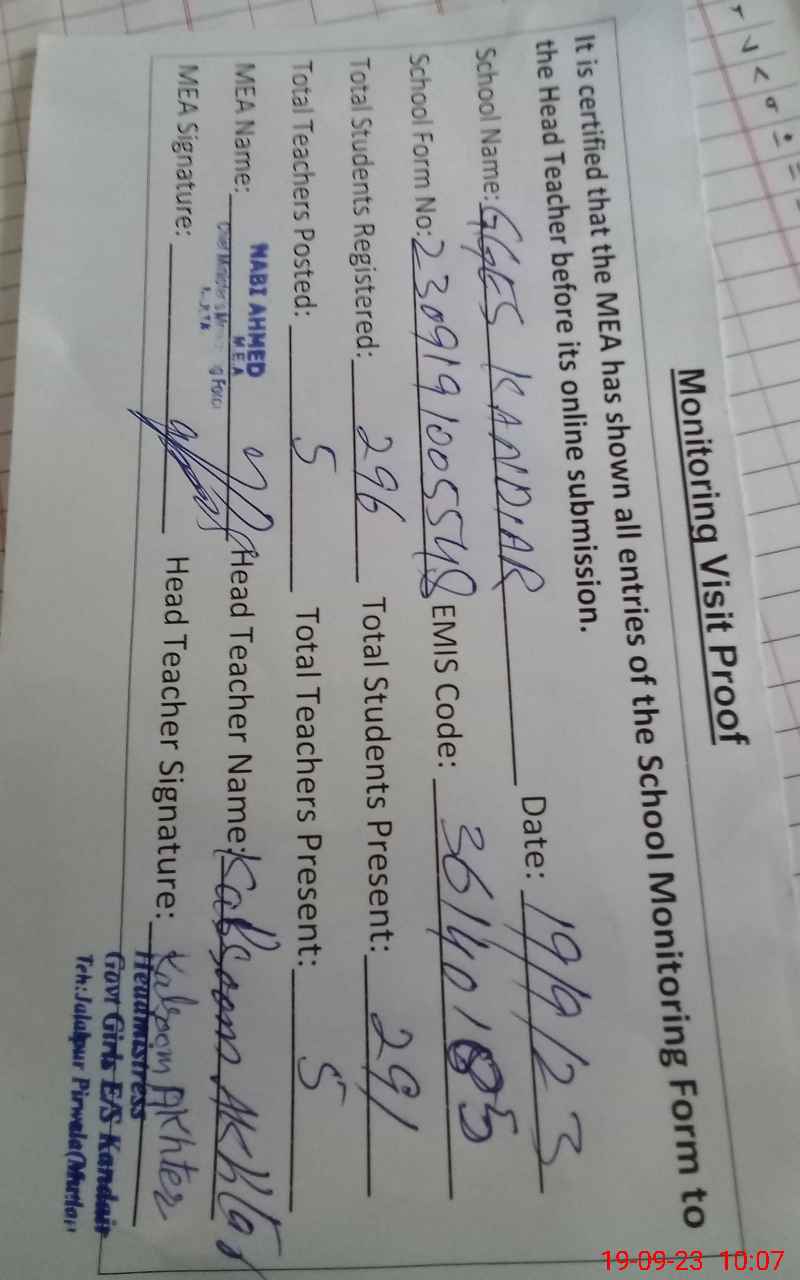 Monitoring Visit Proof
It is certified that the MEA has shown all entries of the School Monitoring Form to
the Head Teacher before its online submission.
School Name: GGES KANDIAR Date: 19/9/23
School Form No: 2309191005548 EMIS Code: 36140185
Total Students Registered: 296 Total Students Present: 291
Total Teachers Posted: 5 Total Teachers Present: 5
NABI AHMED
M E A
MEA Name: Head Teacher Name: Kalsoom Akhtar
Chief Minister's Force
MEA Signature: Head Teacher Signature: Kalsoom Akhter
Headmistress
Govt Girls E/S Kandair
Teh: Jalalpur Pirwala (Multan
19-09-23 10:07